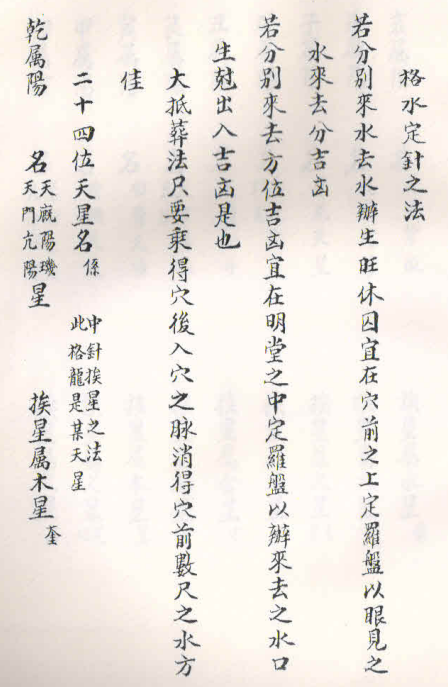 格水定針之法
若分別來水去水辦生旺休囚宜在穴前之上定羅盤以眼見之
水來去分吉凶
若分別來去方位吉凶宜在明堂之中定羅盤以辦來去之水口
生尅出入吉凶是也
大抵葬法只要乗得穴後入穴之脉消得穴前數尺之水方
佳
二十四位天星名係
中針挨星之法
此格龍是某天星
乾属陽 名
天廐陽璣
天門亢陽
星 挨星属木星奎